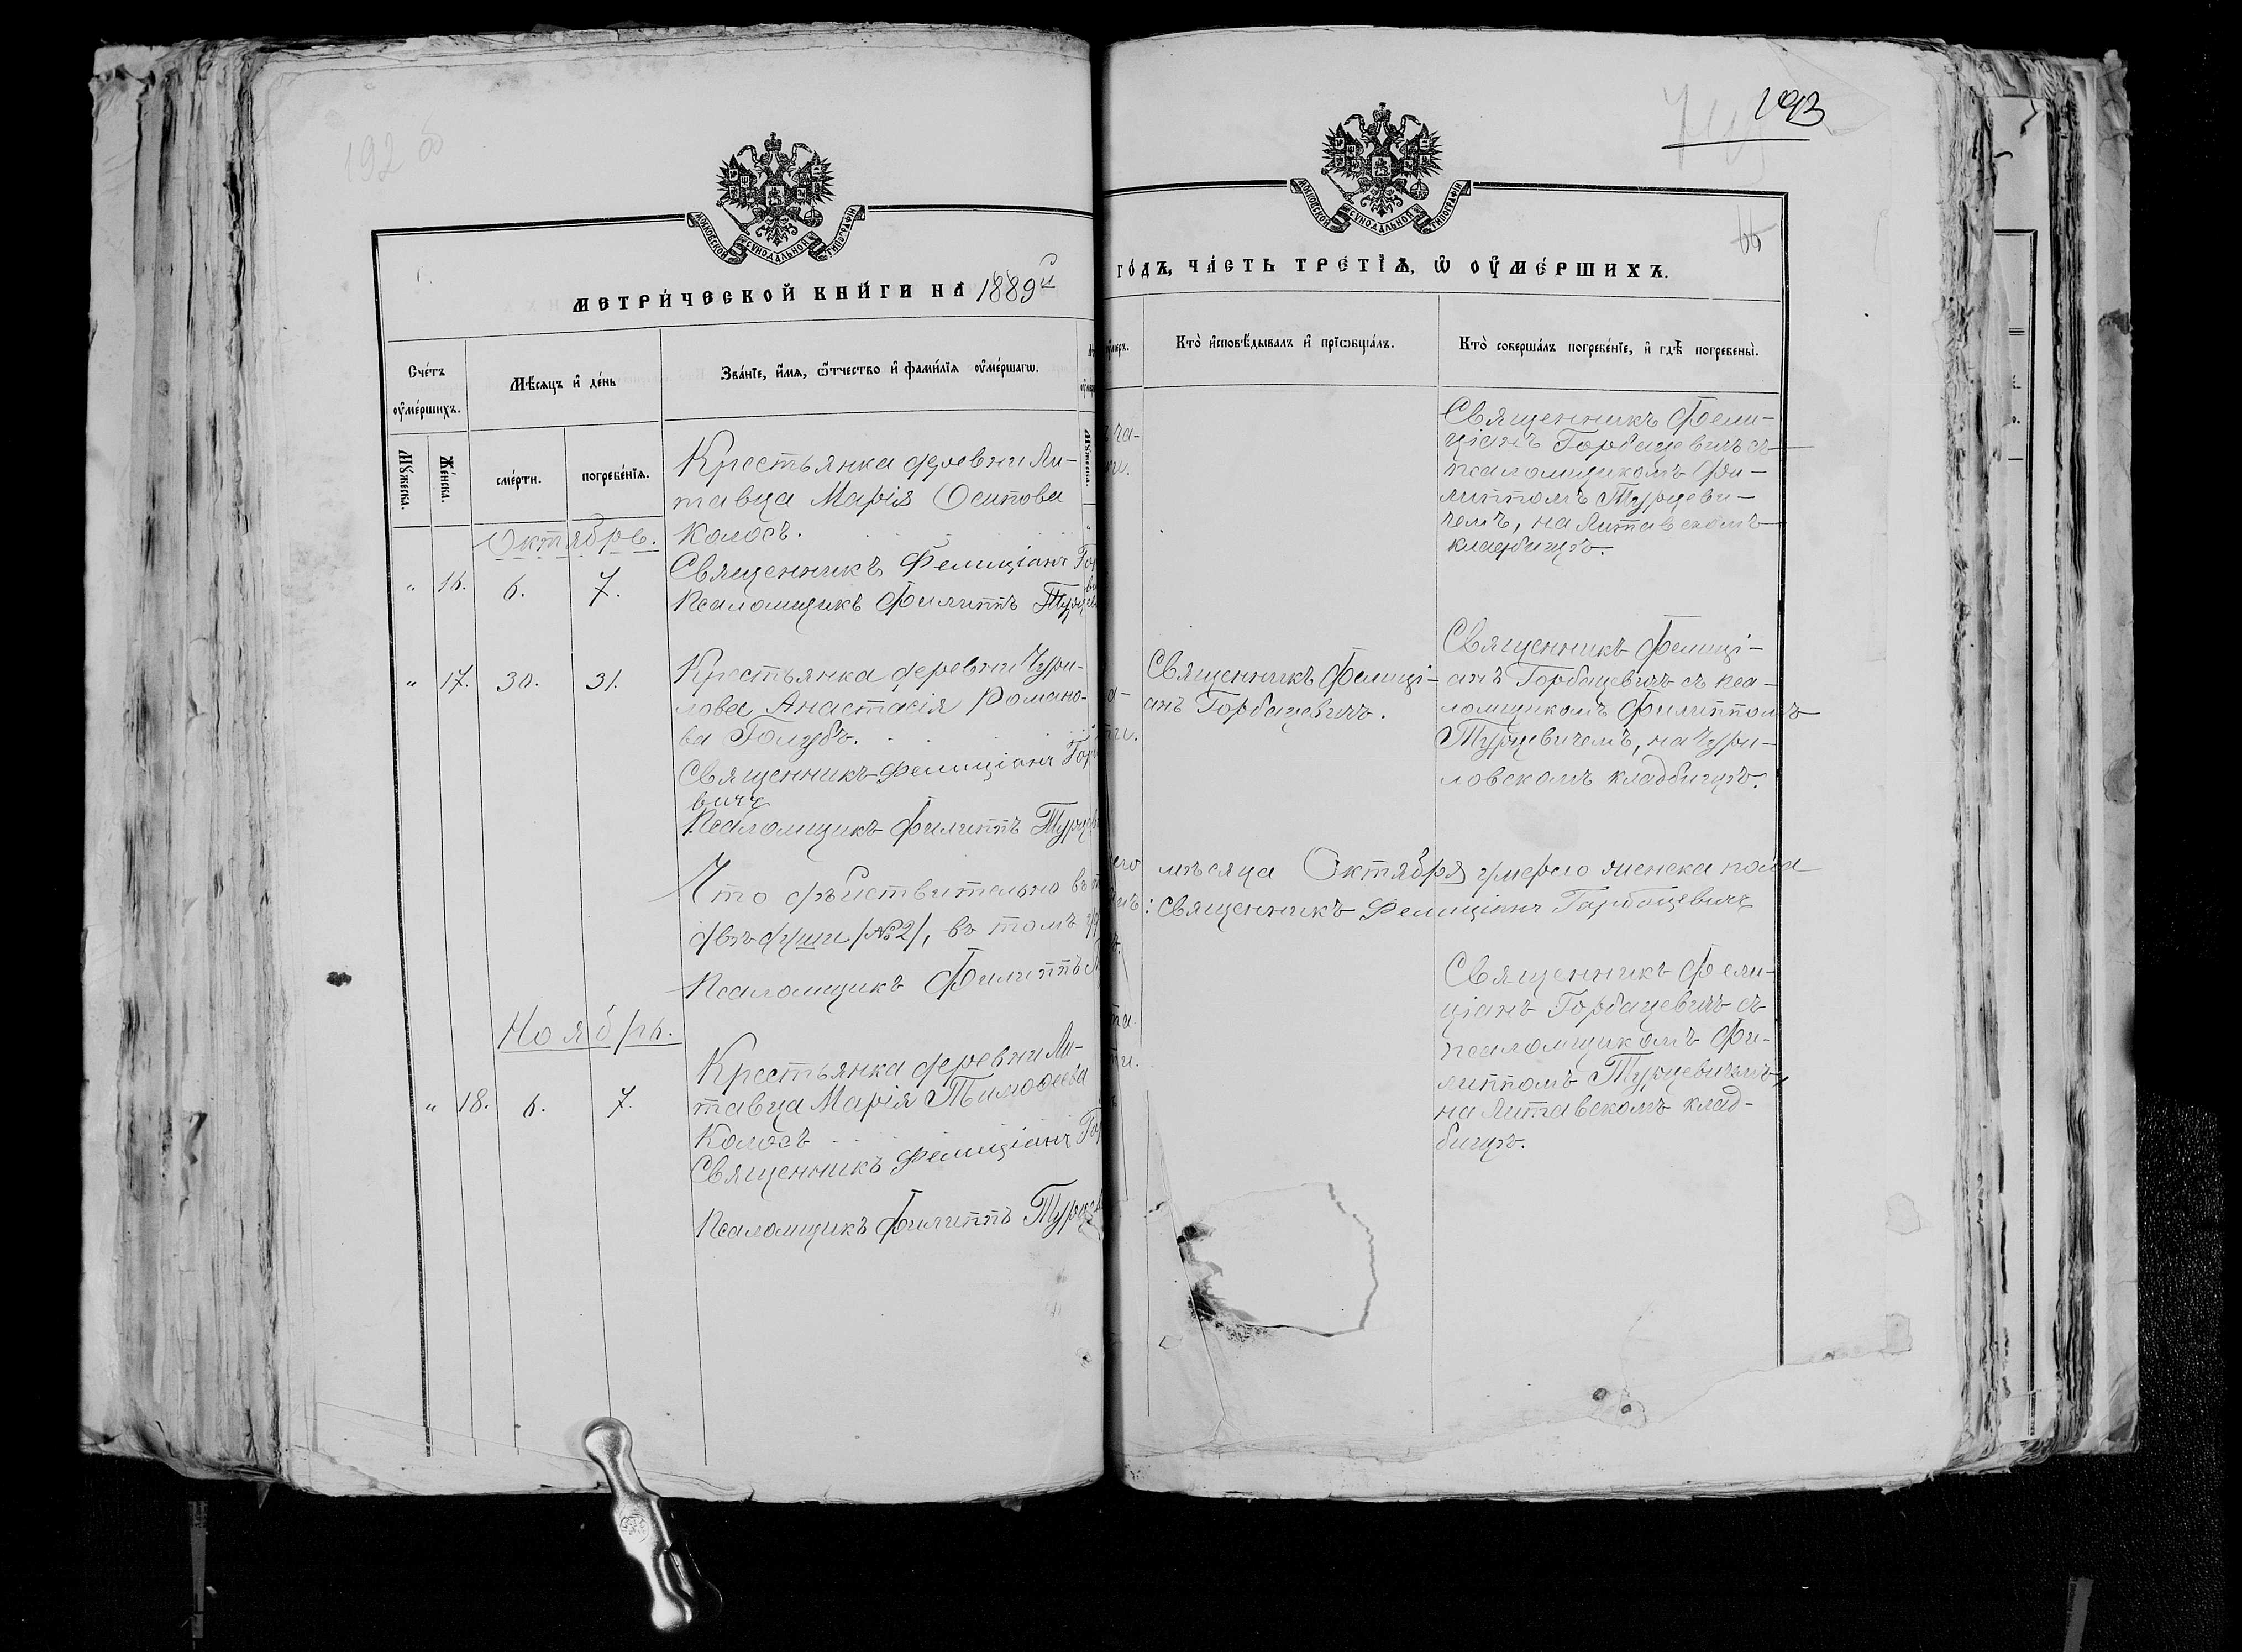 192 об
МОСКОВСКОЙ СѴНОДАЛЬНОЙ ТИПОГРАФІИ
МЕТРИ́ЧЕСКОЙ КНИ́ГИ НА 1889й
Сче́тъ ᲂу҆ме́ршихъ.
Мѣ́сѧцъ и҆ де́нь
Зва́нїе, и҆́мѧ, ѻ҆́тчество и҆ фами́лїѧ ᲂу҆ме́ршагѡ.
Мꙋ́жеска.
Же́нска.
сме́рти.
погребе́нїѧ.
Мꙋ́жеска.
Октябрь.
" 16. 6. 7.
Крестьянка деревни Ли-
тавца Марія Осипова
Колосъ.
Священникъ Фелиціанъ Гор
Псаломщикъ Филиппъ Турцев
" 17. 30. 31.
Крестьянка деревни Чури-
лова Анастасія Романо-
ва Голубъ.
Священникъ Фелиціанъ Гор
вичъ
Псаломщикъ Филиппъ Турцев
Что дѣйствительно въ
двѣ души /№ 2/, въ томъ
Псаломщикъ Филиппъ
Ноябрь.
" 18. 6. 7.
Крестьянка деревни Ли-
тавца Марія Тимофеева
Колосъ
Священникъ Фелиціанъ Гор
Псаломщикъ Филиппъ Турцев
193
МОСКОВСКОЙ СѴНОДАЛЬНОЙ ТИПОГРАФІИ
ГО́ДЪ, ЧА́СТЬ ТРЕ́ТЇѦ, Ѽ ОУ҆МЕ́РШИХЪ.
Кто̀ и҆сповѣ́дывалъ и҆ прїѡбща́лъ.
Кто̀ соверша́лъ погребе́нїе, и҆ гдѣ̀ погребены̀.
Священникъ Фели-
ціанъ Горбацевичъ съ
псаломщикомъ Фи-
липпомъ Турцеви-
чемъ, на Литавскомъ
кладбищѣ.
Священникъ Фелиці-
анъ Горбацевичъ.
Священникъ Фелиці-
анъ Горбацевичъ съ пса-
ломщикомъ Филиппомъ
Турцевичемъ, на Чури-
ловскомъ кладбищѣ.
мѣсяца Октября умерло женска пола
: Священникъ Фелиціанъ Горбацевичъ
Священникъ Фели-
ціанъ Горбацевичъ съ
псаломщикомъ Фи-
липпомъ Турцевичемъ,
на Литавскомъ клад-
бищѣ.